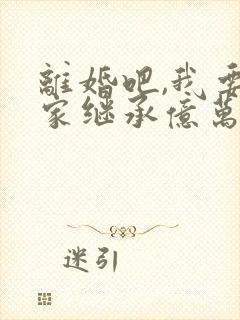 離婚吧,我要
家继承億萬
迷引